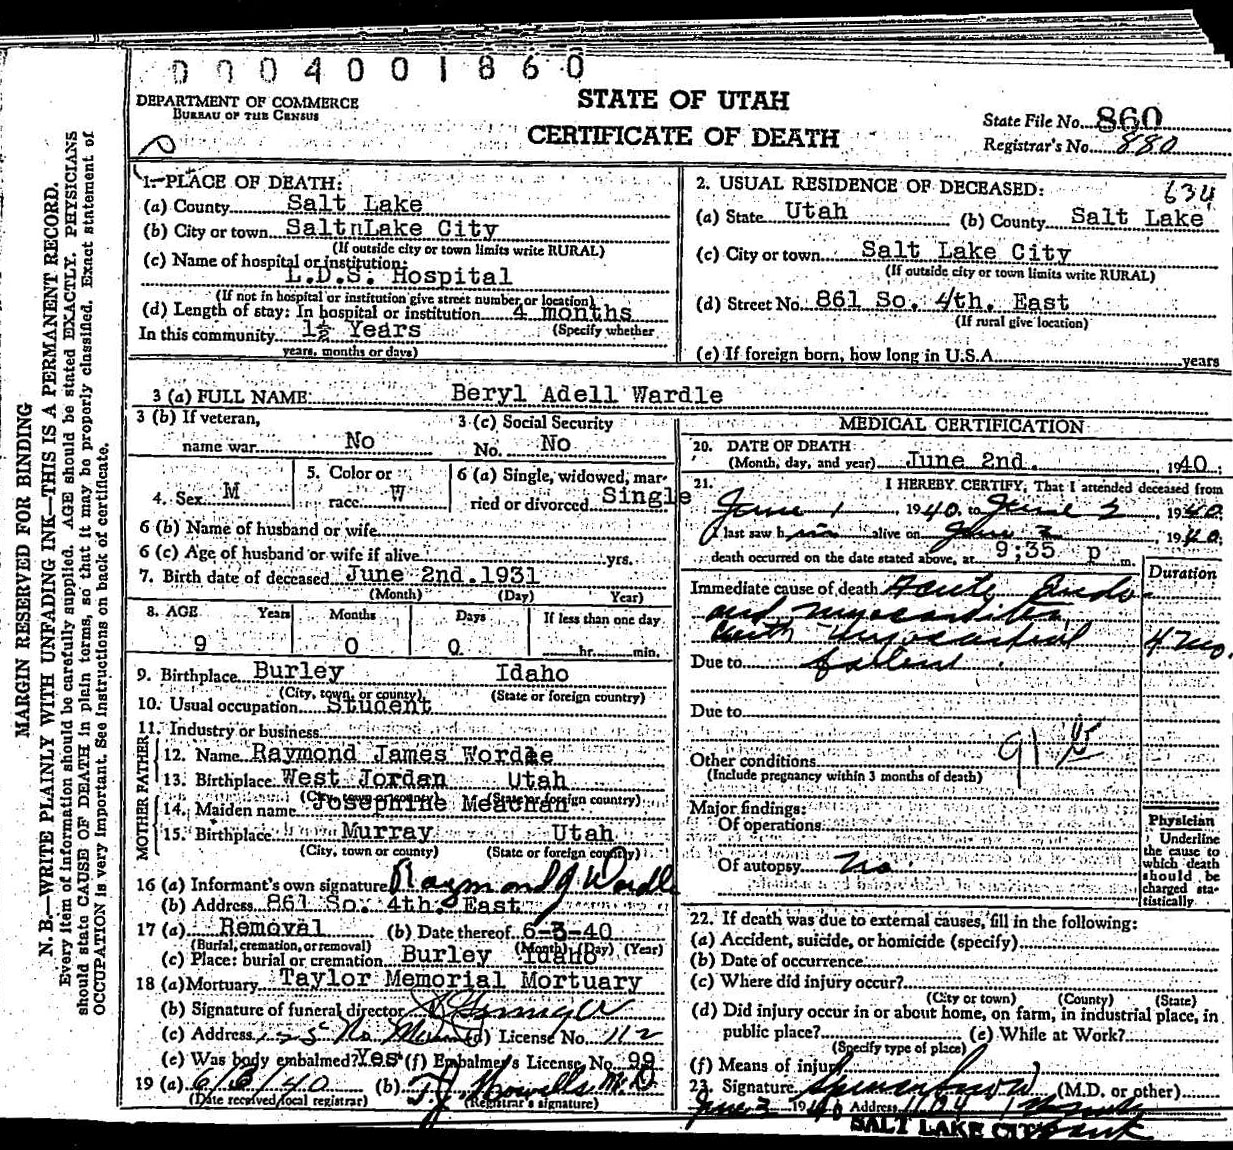 0004001860
DEPARTMENT OF COMMERCE
BUREAU OF THE CENSUS
STATE OF UTAH
CERTIFICATE OF DEATH
State File No. 860
Registrar's No. 880
1. PLACE OF DEATH:
(a) County Salt Lake
(b) City or town Salt Lake City
(If outside city or town limits write RURAL)
(c) Name of hospital or institution:
L.D.S. Hospital
(If not in hospital or institution give street number or location)
(d) Length of stay: In hospital or institution 4 months
(Specify whether
In this community 1½ Years
years, months or days)
2. USUAL RESIDENCE OF DECEASED: 634
(a) State Utah (b) County Salt Lake
(c) City or town Salt Lake City
(If outside city or town limits write RURAL)
(d) Street No. 861 So. 4th. East
(If rural give location)
(e) If foreign born, how long in U.S.A. years
3 (a) FULL NAME: Beryl Adell Wardle
3 (b) If veteran, name war No
3 (c) Social Security No. No
4. Sex M
5. Color or race W
6 (a) Single, widowed, married or divorced Single
6 (b) Name of husband or wife
6 (c) Age of husband or wife if alive yrs.
7. Birth date of deceased June 2nd. 1931
(Month) (Day) Year)
8. AGE Years Months Days If less than one day
9 0 0 hr. min.
9. Birthplace Burley Idaho
(City, town, or county) (State or foreign country)
10. Usual occupation Student
11. Industry or business
FATHER
12. Name Raymond James Wordle
13. Birthplace West Jordan Utah
(City, town or county) (State or foreign country)
MOTHER
14. Maiden name Josephine Meachan
15. Birthplace Murray Utah
(City, town or county) (State or foreign country)
16 (a) Informant's own signature Raymond J Wardle
(b) Address 861 So. 4th. East
17 (a) Removal (b) Date thereof 6-3-40
(Burial, cremation, or removal) (Month) (Day) (Year)
(c) Place: burial or cremation Burley Idaho
18 (a) Mortuary Taylor Memorial Mortuary
(b) Signature of funeral director
(c) Address 125 No Main (d) License No. 112
(e) Was body embalmed? Yes (f) Embalmer's License No. 99
19 (a) 6/3/40 (b) T.J. Howells M.D
(Date received local registrar) (Registrar's signature)
MEDICAL CERTIFICATION
20. DATE OF DEATH
(Month, day, and year) June 2nd. 1940
21. I HEREBY CERTIFY, That I attended deceased from
June 1 1940 to June 2 1940
I last saw him alive on June 2 1940
death occurred on the date stated above, at 9;35 p m.
Duration
Immediate cause of death Acute Endo-
and myocarditis
with myocardial 4 mo.
Due to failure
Due to
Other conditions
(Include pregnancy within 3 months of death)
Major findings:
Of operations
Of autopsy no
Physician
Underline the cause to which death should be charged statistically
22. If death was due to external causes, fill in the following:
(a) Accident, suicide, or homicide (specify)
(b) Date of occurrence
(c) Where did injury occur?
(City or town) (County) (State)
(d) Did injury occur in or about home, on farm, in industrial place, in
public place? (e) While at Work?
(Specify type of place)
(f) Means of injury
23. Signature (M.D. or other)
June 3 1940 Address 1104
SALT LAKE CITY
MARGIN RESERVED FOR BINDING
N. B.—WRITE PLAINLY WITH UNFADING INK—THIS IS A PERMANENT RECORD.
Every item of information should be carefully supplied. AGE should be stated EXACTLY. PHYSICIANS
should state CAUSE OF DEATH in plain terms, so that it may be properly classified. Exact statement of
OCCUPATION is very important. See instructions on back of certificate.